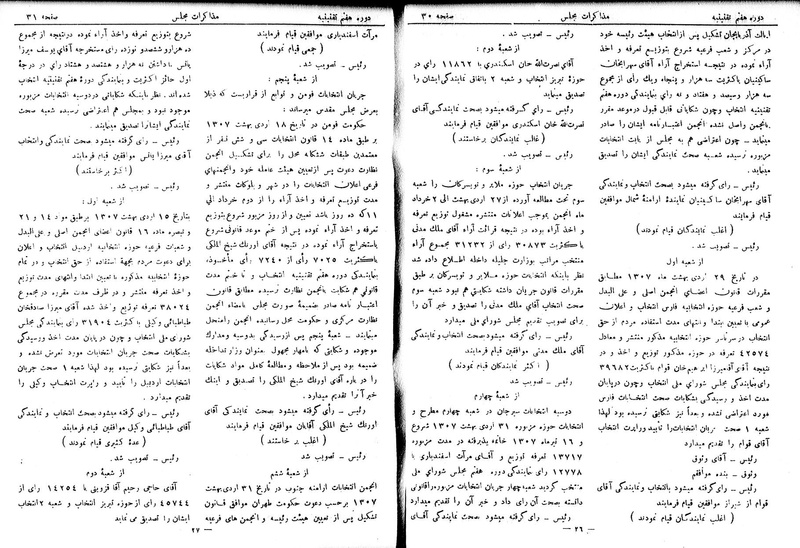 دوره هفتم تقنینیه
مذاکرات مجلس
صفحه ۳۰
ایالت آذربایجان تشکیل پس از انتخاب هیئت رئیسه خود
در مرکز و شعب فرعیه شروع بتوزیع تعرفه و اخذ
آراء نموده در نتیجه استخراج آراء آقای سهرابخان
ساکینیان باکثریت سه هزار و پنجاه ویک رأی از مجموع
سه هزار و سیصد و هفتاد و نه رأی بنمایندگی دوره هفتم
تقنینیه انتخاب وچون شکایاتی قابل قبول درموعد مقرر
بانجمن واصل نشده انجمن اعتبارنامه ایشان را صادر
مینماید ـ چون اعتراضی هم به مجلس از بابت انتخابات
مزبوره نرسیده شعبه صحت نمایندگی ایشان را تصدیق
مینماید.
رئیس ـ رای گرفته میشود بصحت انتخاب ونمایندگی
آقای سهرابخان ساکینیان نماینده ارامنه شمال موافقین
قیام فرمایند
(اغلب نمایندگان قیام نمودند)
رئیس ـ تصویب شد.
از شعبه اول
در تاریخ ۲۹ اردی بهشت ماه ۱۳۰۷ مطابق
مقررات قانون اعضای انجمن اصلی و علی البدل
و شعب فرعیه حوزه انتخابیه فارس انتخاب و اعلان
عمومی با تعیین ابتدا وانتهای مدت استفاده مردم از حق
انتخاب در سرتاسر حوزه انتخابیه مذکور منتشر و معادل
۴۲۵۷۴ تعرفه در حوزه مذکور توزیع و اخذ و در
نتیجه آقای آقامیرزا ابرهیم خان قوام باکثریت ۳۹۶۸۲
رای بنمایندگی مجلس شورای ملی انتخاب وچون درپایان
مدت اخذ و رسیدگی بشکایات صحت انتخابات فارس
مورد اعتراضی نشده و بعداً نیز شکایتی نرسیده بود لهذا
شعبه ۱ صحت جریان انتخابات را تأیید وراپرت انتخاب
آقای قوام را تقدیم میدارد
رئیس ـ آقای وثوق
وثوق ـ بنده موافقم
رئیس ـ رای گرفته میشود بانتخاب ونمایندگی آقای
قوام از شیراز موافقین قیام فرمایند
(اغلب نمایندگان قیام نمودند)
رئیس ـ تصویب شد.
از شعبه دوم:
آقای نصرت‌الله خان اسکندری با ۱۱۸۶۲ رای در
حوزهٔ تبریز انتخاب و شعبه ۲ باتفاق نمایندگی ایشان را
تصدیق مینماید
رئیس ـ رای گرفته میشود بصحت نمایندگی آقای
نصرت‌الله خان اسکندری موافقین قیام فرمایند
(غالب نمایندگان برخاستند)
رئیس ـ تصویب شد
از شعبه سوم:
جریان انتخاب حوزه ملایر و تویسرکان را شعبه
سوم تحت مطالعه آورده از ۲۷ اردی بهشت الی ۲ خرداد
ماه انجمن بموجب اعلانات منتشره مشغول توزیع تعرفه
و اخذ آراء بوده در نتیجه قرائت آراء آقای ملک مدنی
باکثریت ۳۰۸۷۳ رأی از ۳۱۲۳۲ مجموع آراء
منتخب مراتب بوزارت جلیله داخله اطلاع داده شد
نظر باینکه انتخابات حوزه ملایر و تویسرکان بر طبق
مقررات قانون جریان داشته شکایتی هم نبود شعبه سوم
صحت انتخاب آقای ملک مدنی را تصدیق و خبر آن را
برای تصویب تقدیم مجلس شورای ملی میدارد
رئیس ـ رای گرفته میشود بصحت انتخاب و نمایندگی
آقای ملک مدنی موافقین قیام فرمایند.
(اکثر نمایندگان قیام نمودند)
رئیس ـ تصویب شد
از شعبه چهارم
دوسیه انتخابات سیرجان در شعبه چهارم مطرح و
انتخابات حوزه مزبوره ۳۱ اردی بهشت ۱۳۰۷ شروع
و ۱۶ تیرماه ۱۳۰۷ خاتمه پذیرفته در مدت مزبوره
۱۳۷۱۷ تعرفه توزیع و آقای مرآت اسفندیاری با
۱۲۷۷۸ رای بنمایندگی دوره هفتم مجلس شورای ملی
منتخب گردید شعبه چهارم جریان انتخابات مزبوره را قانونی
دانسته بصحت آن رای داد و خبر آن را تقدیم میدارد
رئیس ـ رای گرفته میشود بصحت نمایندگی آقای
ـ ۲۶ ـ
دوره هفتم تقنینیه
مذاکرات مجلس
صفحه ۳۱
مرآت اسفندیاری موافقین قیام فرمایند
(جمعی قیام نمودند)
رئیس ـ تصویب شد.
از شعبه پنجم:
جریان انتخابات فومن و توابع از قراریست که ذیلا
بعرض مجلس مقدس میرساند:
حکومت فومن در تاریخ ۱۸ اردی بهشت ۱۳۰۷
بر طبق ماده ۱۴ قانون انتخابات سی و شش نفر از
معتمدین طبقات ششگانه محل را برای تشکیل انجمن
نظارت دعوت پس از تعیین هیئت عامله خود وانجمنهای
فرعی اعلان انتخابات را در شهر و بلوکات منتشر و
مدت توزیع تعرفه و اخذ آراء را از دوم خرداد الی
۱۱ که ده روز باشد تعیین و از روز مزبور شروع بتوزیع
و اخذ آراء نموده پس از ختم موعد قانونی شروع
باستخراج آراء نموده در نتیجه آقای اورنک شیخ الملکی
باکثریت ۷۰۲۵ رأی از ۷۲۴۰ رأی مأخوذه،
بنمایندگی دوره هفتم تقنینیه انتخاب و تا ختم مدت
قانونی هم شکایت بانجمن نظارت نرسیده مطابق قانون
اعتبار نامه صادر ضمیمهٔ صورت مجلس بامضاء انجمن
نظارت مرکزی و حکومت محل رسانیده انجمن رامنحل
مینمایند ـ شعبه پنجم پس از رسیدگی بدوسیه ومدارک
موجوده و شکایتی که بامهار مجهول بعنوان وزارتداخله
ضمیمه بود پس از ملاحظه و مطالعهٔ کامل مواد شکایات
را در باره آقای اورنک شیخ الملکی را تصدیق و اینک
خبر آنرا تقدیم میدارد.
رئیس ـ رأی گرفته میشود بصحت نمایندگی آقای
اورنک شیخ الملکی آقایان موافقین قیام فرمایند
(اغلب برخاستند)
رئیس ـ تصویب شد
از شعبهٔ ششم
انجمن انتخابات ارامنه جنوب در تاریخ ۳۱ اردی بهشت
۱۳۰۷ برحسب دعوت حکومت طهران موافق قانون
تشکیل پس از تعیین هیئت رئیسه و انجمن های فرعیه
شروع بتوزیع تعرفه واخذ آراء نموده در نتیجه از مجموع
ده هزار و ششصدو نوزده رای مستخرجه آقای یوسف میرزا
یانس با داشتن نه هزار و هشتصد و هشتاد رای در درجهٔ
اول حائز اکثریت و بنمایندگی دورهٔ هفتم تقنینیه انتخاب
شده‌اند. نظر باینکه شکایاتی دردوسیه انتخابات مزبوره
موجود نبود و بمجلس هم اعتراضی نرسیده شعبه صحت
نمایندگی ایشان را تصدیق مینماید.
رئیس ـ رای گرفته میشود بصحت نمایندگی وانتخاب
آقای میرزا یانس موافقین قیام فرمایند
(اکثر برخاستند)
رئیس ـ تصویب شد.
از شعبه اول:
بتاریخ ۱۵ اردی بهشت ۱۳۰۷ برطبق مواد ۱۴ و ۲۱
و تبصره ماده ۱۶ قانون اعضای انجمن اصلی و علی‌البدل
و شعبات فرعیه حوزه انتخابیه اردبیل انتخاب و اعلان
برای دعوت مردم بجهة استفاده از حق انتخاب و در تمام
حوزهٔ انتخابیه مذکوره با تعیین ابتدا وانتهای مدت توزیع
و اخذ تعرفه منتشر و در ظرف مدت مقرره در مجموع
۳۸۰۷۴ تعرفه توزیع واخذ شده آقای میرزا صادقخان
طباطبائی وکیلی باکثریت ۳۱۹۰۴ رای بنمایندگی مجلس
شورای ملی انتخاب و چون در پایان مدت اخذ ورسیدگی
بشکایات صحت جریان انتخابات مورد تعرض نشده و
بعداً نیز شکایتی نرسیده بود لهذا شعبه ۱ صحت جریان
انتخابات اردبیل را تأیید و راپرت انتخاب وکیلی را
تقدیم میدارد.
رئیس ـ رای گرفته میشود بصحت انتخاب و نمایندگی
آقای طباطبائی وکیل موافقین قیام فرمایند
(عدهٔ کثیری قیام نمودند)
رئیس ـ تصویب شد.
از شعبهٔ دوم
آقای حاجی رحیم آقا قزوینی با ۱۴۲۵۴ رای از
۴۵۷۴۴ رای از حوزه تبریز انتخاب و شعبه ۲ انتخاب
ایشان را تصدیق می نماید
ـ ۲۷ ـ